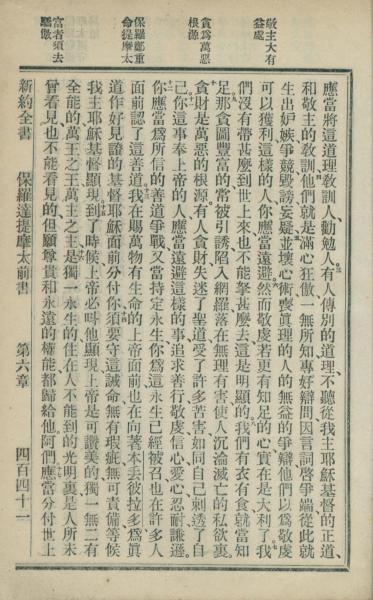 敬主大有
益處
貪爲萬惡
根源
保羅鄭重
命提摩太
富者須去
驕傲
應當將這道理敎訓人、勸勉人、有人傳別的道理、不聽從我主耶穌基督的正道、
和敬主的敎訓、他們就是滿心狂傲、一無所知、專好辯問、因言詞啓爭端、從此就
生出妒嫉爭競毀謗妄疑、並壞心術喪眞理的人的無益的爭辯、他們以爲敬虔
可以獲利、這樣的人、你應當遠避、然而敬虔若更有知足的心、實在是大利了、我
們沒有帶甚麼到世上來、也不能拏甚麼去、這是明顯的、我們有衣有食、就當知
足、那貪圖豐富的、常被引誘、陷入網羅、落在無理有害使人沉淪滅亡的私欲裏、
貪財是萬惡的根源、有人貪財失迷了聖道、受了許多苦害、如同自己刺透了自
己、你這事奉上帝的人、應當遠避這樣的事、追求善行敬虔信心愛心忍耐謙遜、
你應當爲所信的善道爭戰、又當持定永生、你爲這永生已經被召、也在許多人
面前認了這善道、我在賜萬物有生命的上帝面前、也在向著本丟彼拉多爲眞
道作好見證的基督耶穌面前分付你、須要守這誡命、無有瑕疵、無可責備、等候
我主耶穌基督顯現、到了時候、上帝必叫他顯現、上帝是可讚美的、獨一無二有
全能的、萬王之王、萬主之主、是獨一永生的、住在人不能到的光明裏、是人所未
曾看見、也不能看見的、但願尊貴和永遠的權能、都歸給他、阿們、應當分付世上
新約全書 保羅達提摩太前書 第六章 四百四十一